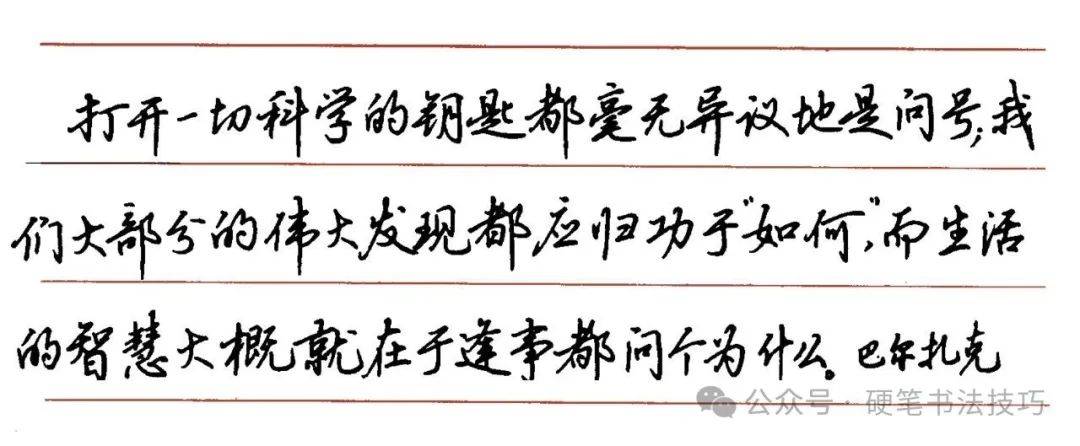 打开一切科学的钥匙都毫无异议地是问号,我
们大部分的伟大发现都应归功于"如何",而生活
的智慧大概就在于逢事都问个为什么。巴尔扎克
公众号·硬笔书法技巧